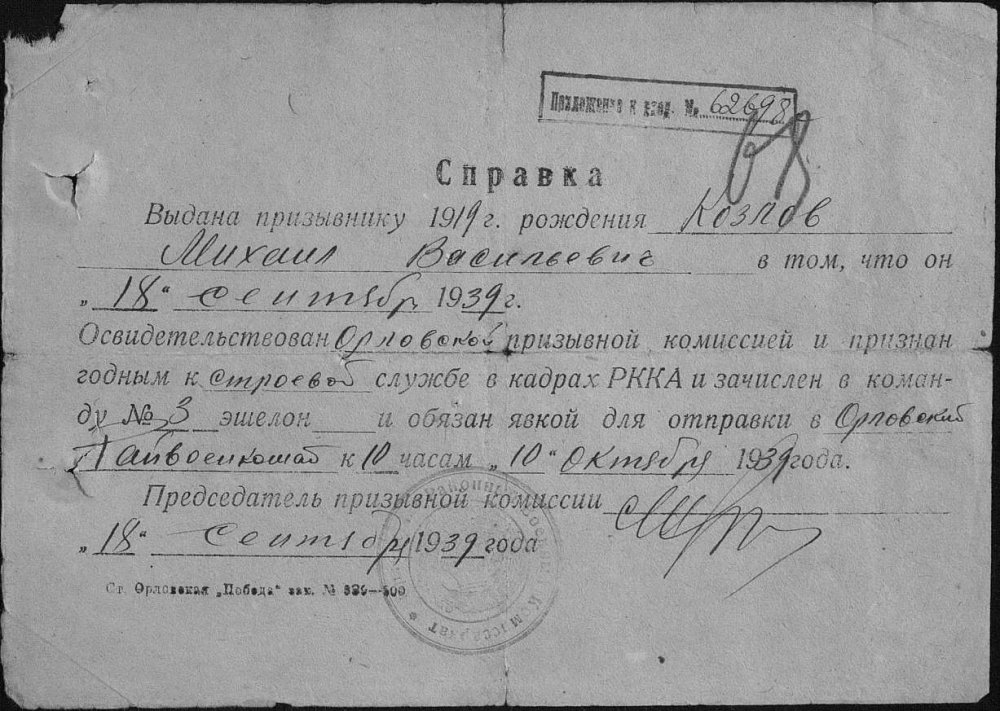 Приложение к вход. № 62698
68
Справка
Выдана призывнику 1919 г. рождения Козлов
Михаил Васильевич в том, что он
„18“ сентября 1939 г.
Освидетельствован Орловской призывной комиссией и признан
годным к строевой службе в кадрах РККА и зачислен в коман-
ду № 3 эшелон и обязан явкой для отправки в Орловский
Райвоенкомат к 10 часам „10“ октября 1939 года.
Председатель призывной комиссии
„18“ сентября 1939 года
Ст. Орловская „Победа“ зак. №
Комиссариат